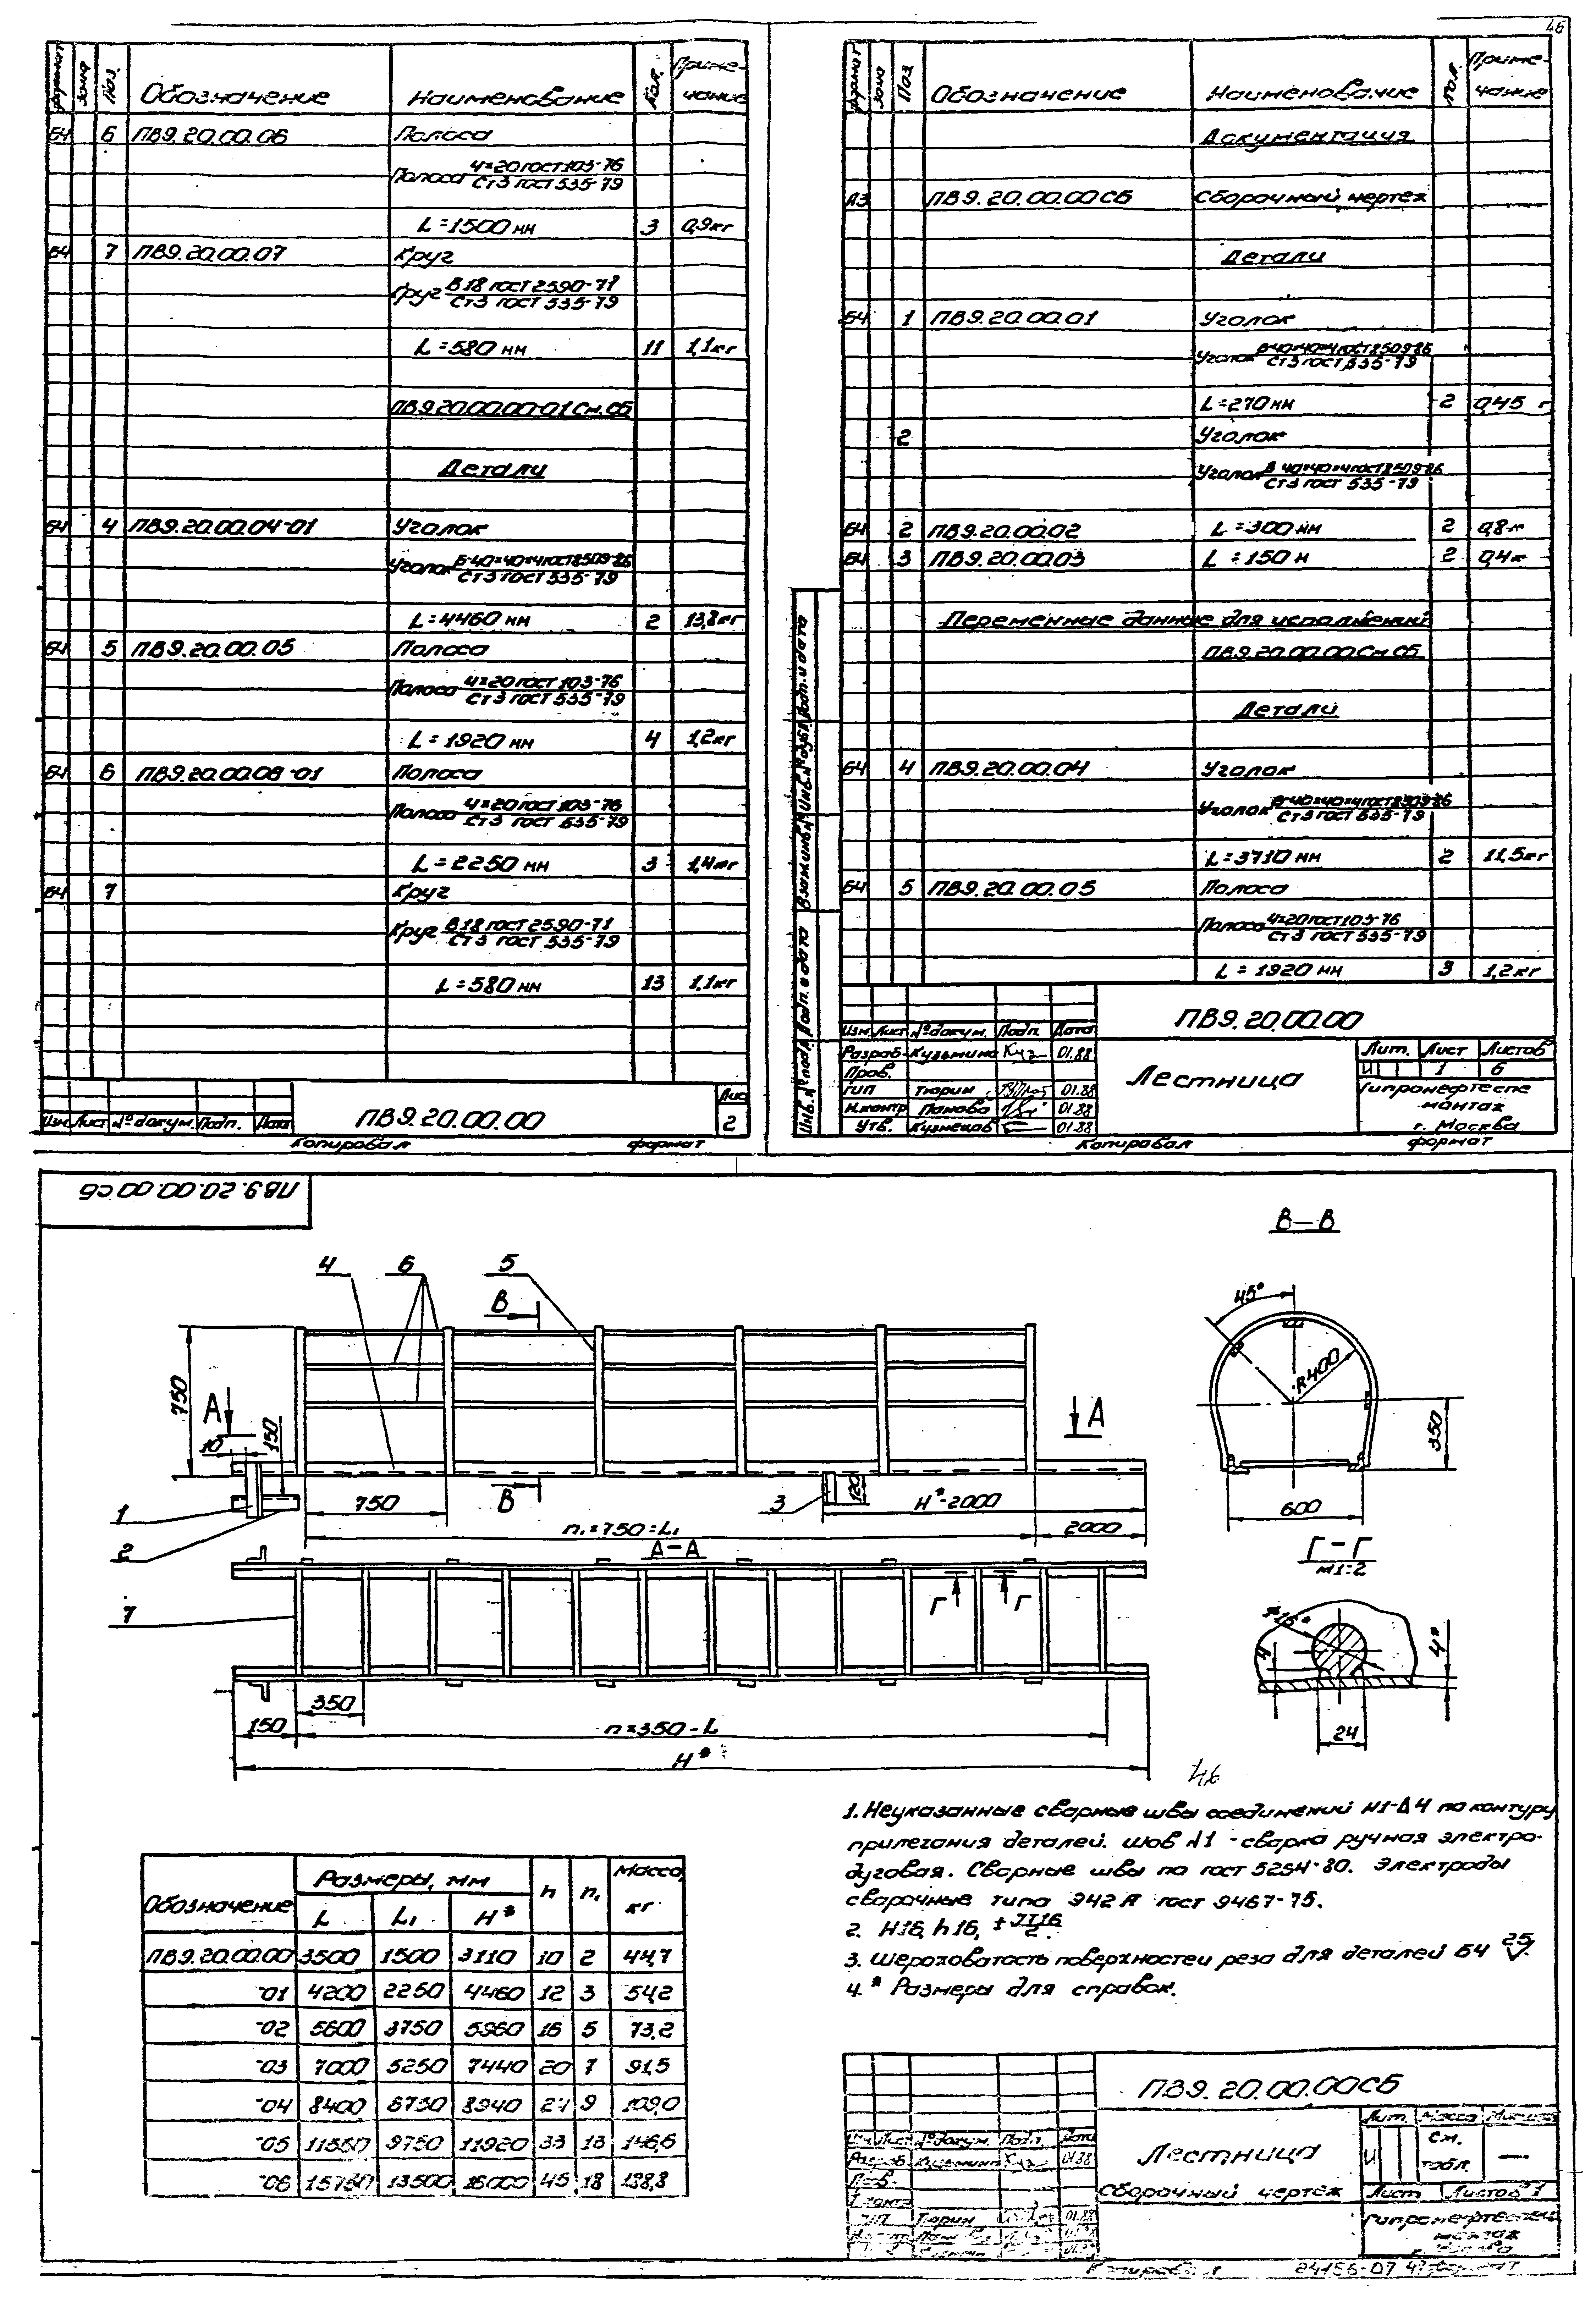 46
формат
зона
Поз.
Обозначение
Наименование
Кол.
Приме-
чание
Б4 6 ПВ9.20.00.06 Полоса
Полоса 4×20 ГОСТ 103-76
Ст3 ГОСТ 535-79
L=1500 мм 3 0,9кг
Б4 7 ПВ9.20.00.07 Круг
Круг В18 ГОСТ 2590-71
Ст3 ГОСТ 535-79
L=580 мм 11 1,1кг
ПВ9.20.00.00-01 См. СБ
Детали
Б4 4 ПВ9.20.00.04-01 Уголок
Уголок Б-40×40×4 ГОСТ 8509-86
Ст3 ГОСТ 535-79
L=4460 мм 2 13,8кг
Б4 5 ПВ9.20.00.05 Полоса
Полоса 4×20 ГОСТ 103-76
Ст3 ГОСТ 535-79
L=1920 мм 4 1,2кг
Б4 6 ПВ9.20.00.06-01 Полоса
Полоса 4×20 ГОСТ 103-76
Ст3 ГОСТ 535-79
L=2250 мм 3 1,4кг
Б4 7 Круг
Круг В18 ГОСТ 2590-71
Ст3 ГОСТ 535-79
L=580 мм 13 1,1кг
Изм. Лист № докум. Подп. Дата
ПВ9.20.00.00
Лис
2
Копировал формат
формат
зона
Поз.
Обозначение
Наименование
Кол.
Приме-
чание
Документация
А3 ПВ9.20.00.00СБ Сборочный чертеж
Детали
Б4 1 ПВ9.20.00.01 Уголок
Уголок В-40×40×4 ГОСТ 8509-86
Ст3 ГОСТ 535-79
L=270 мм 2 0,45 г
2 Уголок
Уголок В 40×40×4 ГОСТ 8509-86
Ст3 ГОСТ 535-79
Б4 2 ПВ9.20.00.02 L=300 мм 2 0,8 кг
Б4 3 ПВ9.20.00.03 L=150 м 2 0,4к
Переменные данные для исполнений
ПВ9.20.00.00 См. СБ
Детали
Б4 4 ПВ9.20.00.04 Уголок
Уголок В-40×40×4 ГОСТ 8509-86
Ст3 ГОСТ 535-79
L=3710 мм 2 11,5кг
Б4 5 ПВ9.20.00.05 Полоса
Полоса 4×20 ГОСТ 103-76
Ст3 ГОСТ 535-79
L=1920 мм 3 1,2кг
Подп. и дата
Взам. инв. №
Подп. и дата
Инв. № подл.
Изм Лист № докум. Подп Дата
Разраб. Кузьмина Куз 01.88
Пров.
ГИП Тюрин 01.88
Н.контр Панова 01.88
Утв. Кузнецов 01.88
ПВ9.20.00.00
Лестница
Лит. Лист Листов
И 1 6
Гипронефтеспе
монтаж
г. Москва
Копировал формат
ПВ9.20.00.00СБ
4 6 5
В
В-В
45°
R400
350
600
750
А А
10
150
120
1
2
750
В
3
H*-2000
n₁×750=L₁
2000
А-А
Г-Г
М1:2
7
Г Г
4
4*
24
350
150
n×350=L
H*
46
1. Неуказанные сварные швы соединений Н1-Δ4 по контуру
прилегания деталей. Шов №1 - сварка ручная электро-
дуговая. Сварные швы по ГОСТ 5264-80. Электроды
сварочные типа Э42А ГОСТ 9467-75.
2. H16, h16, ± IT16
2.
3. Шероховатость поверхностей реза для деталей Б4 25
4.* Размеры для справок.
Обозначение
Размеры, мм
L L₁ H*
n
n₁
Масса,
кг
ПВ9.20.00.00 3500 1500 3110 10 2 44,7
-01 4200 2250 4460 12 3 54,2
-02 5600 3750 5960 16 5 73,2
-03 7000 5250 7440 20 7 91,5
-04 8400 6750 8940 24 9 109,0
-05 11550 9750 11920 33 13 146,6
-06 15750 13500 16000 45 18 198,8
ПВ9.20.00.00СБ
Изм Лист № докум. Подп Дата
Разраб. Кузьмина Куз 01.88
Пров.
Т.контр
ГИП Тюрин 01.88
Лестница
Сборочный чертеж
Лит. Масса
И
См.
табл.
—
Лист Листов 1
Гипронефтеспец
монтаж
г. Москва
Копировал 24156-07 47 формат